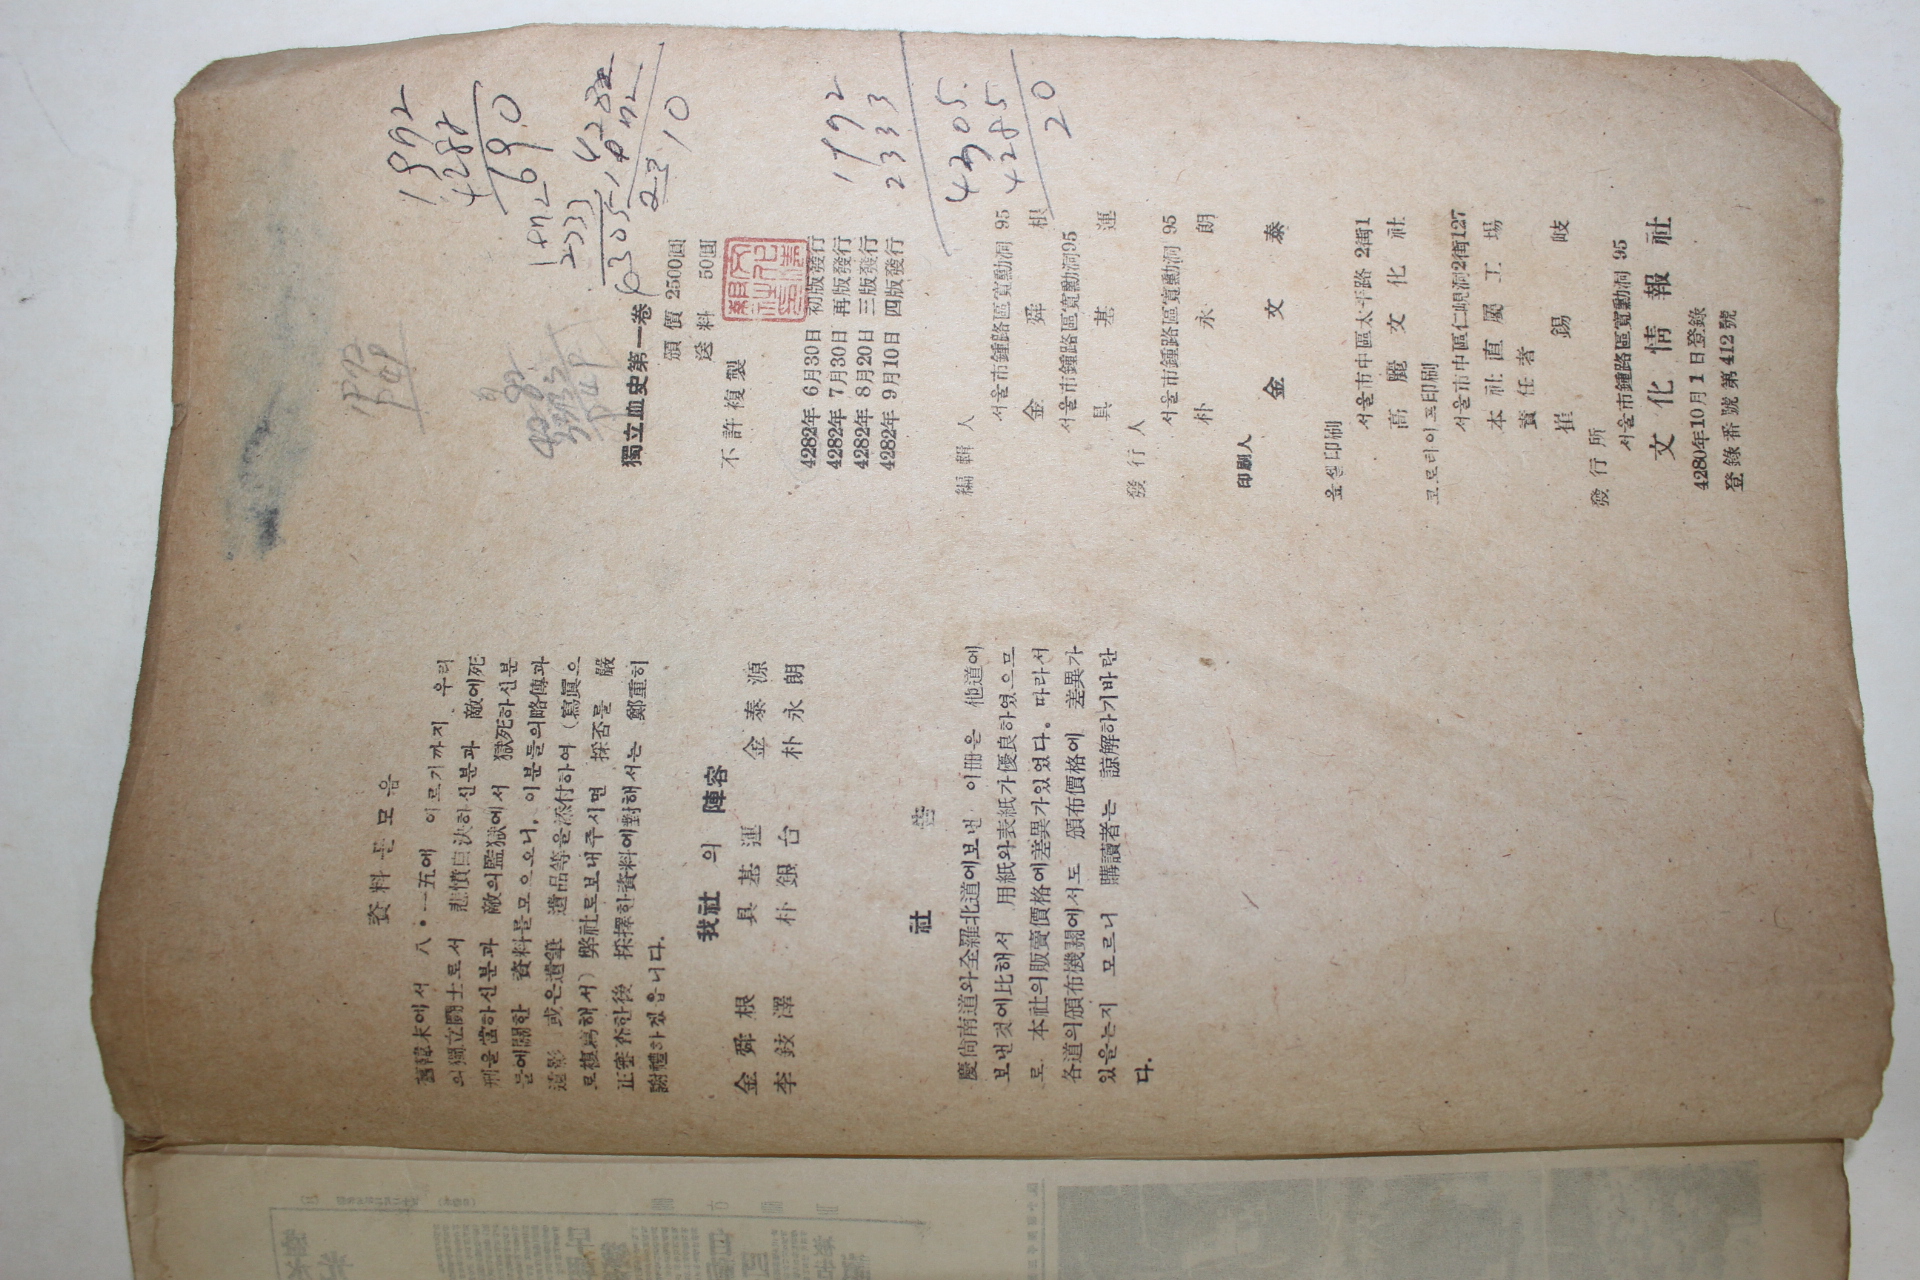 資料를모음
舊韓末에서 八•一五에 이르기까지 우리
의獨立鬪士로서 悲憤自決하신분과 敵에死
刑을當하신분과 敵의監獄에서 獄死하신분
들에關한 資料를모으오니, 이분들의略傳과
遺影 或은遺筆 遺品等을添付하여 (寫眞으
로複寫해서) 弊社로보내주시면 採否를 嚴
正審査한後 採擇한資料에對해서는 鄭重히
謝禮하겠읍니다.
我社의 陣容
金舜根 具基運 金泰源
李鉉澤 朴銀台 朴永朗
社 告
慶尙南道와全羅北道에보낸 이冊은 他道에
보낸것에比해서 用紙와表紙가優良하였으므
로 本社의販賣價格에差異가있었다. 따라서
各道의頒布機關에서도 頒布價格에 差異가
있을는지 모르니 購讀者는 諒解하기바란
다.
獨立血史第一卷
頒價 2500圓
送料 50圓
不許複製
4282年 6月30日 初版發行
4282年 7月30日 再版發行
4282年 8月20日 三版發行
4282年 9月10日 四版發行
編輯人
서울市鍾路區寬勳洞 95
金舜根
서울市鍾路區寬勳洞95
具基運
發行人
서울市鍾路區寬勳洞 95
朴永朗
印刷人
金文泰
옵셑印刷
서울市中區太平路 2街1
高麗文化社
코로타이프印刷
서울市中區仁峴洞2街127
本社直屬工場
責任者
崔錫岐
發行所
서울市鍾路區寬勳洞 95
文化情報社
4280年10月1日登錄
登錄番號第412號
1972
4282
690
1972
2333
4305
4282
23
10
1972
2333
4305.
4285
20